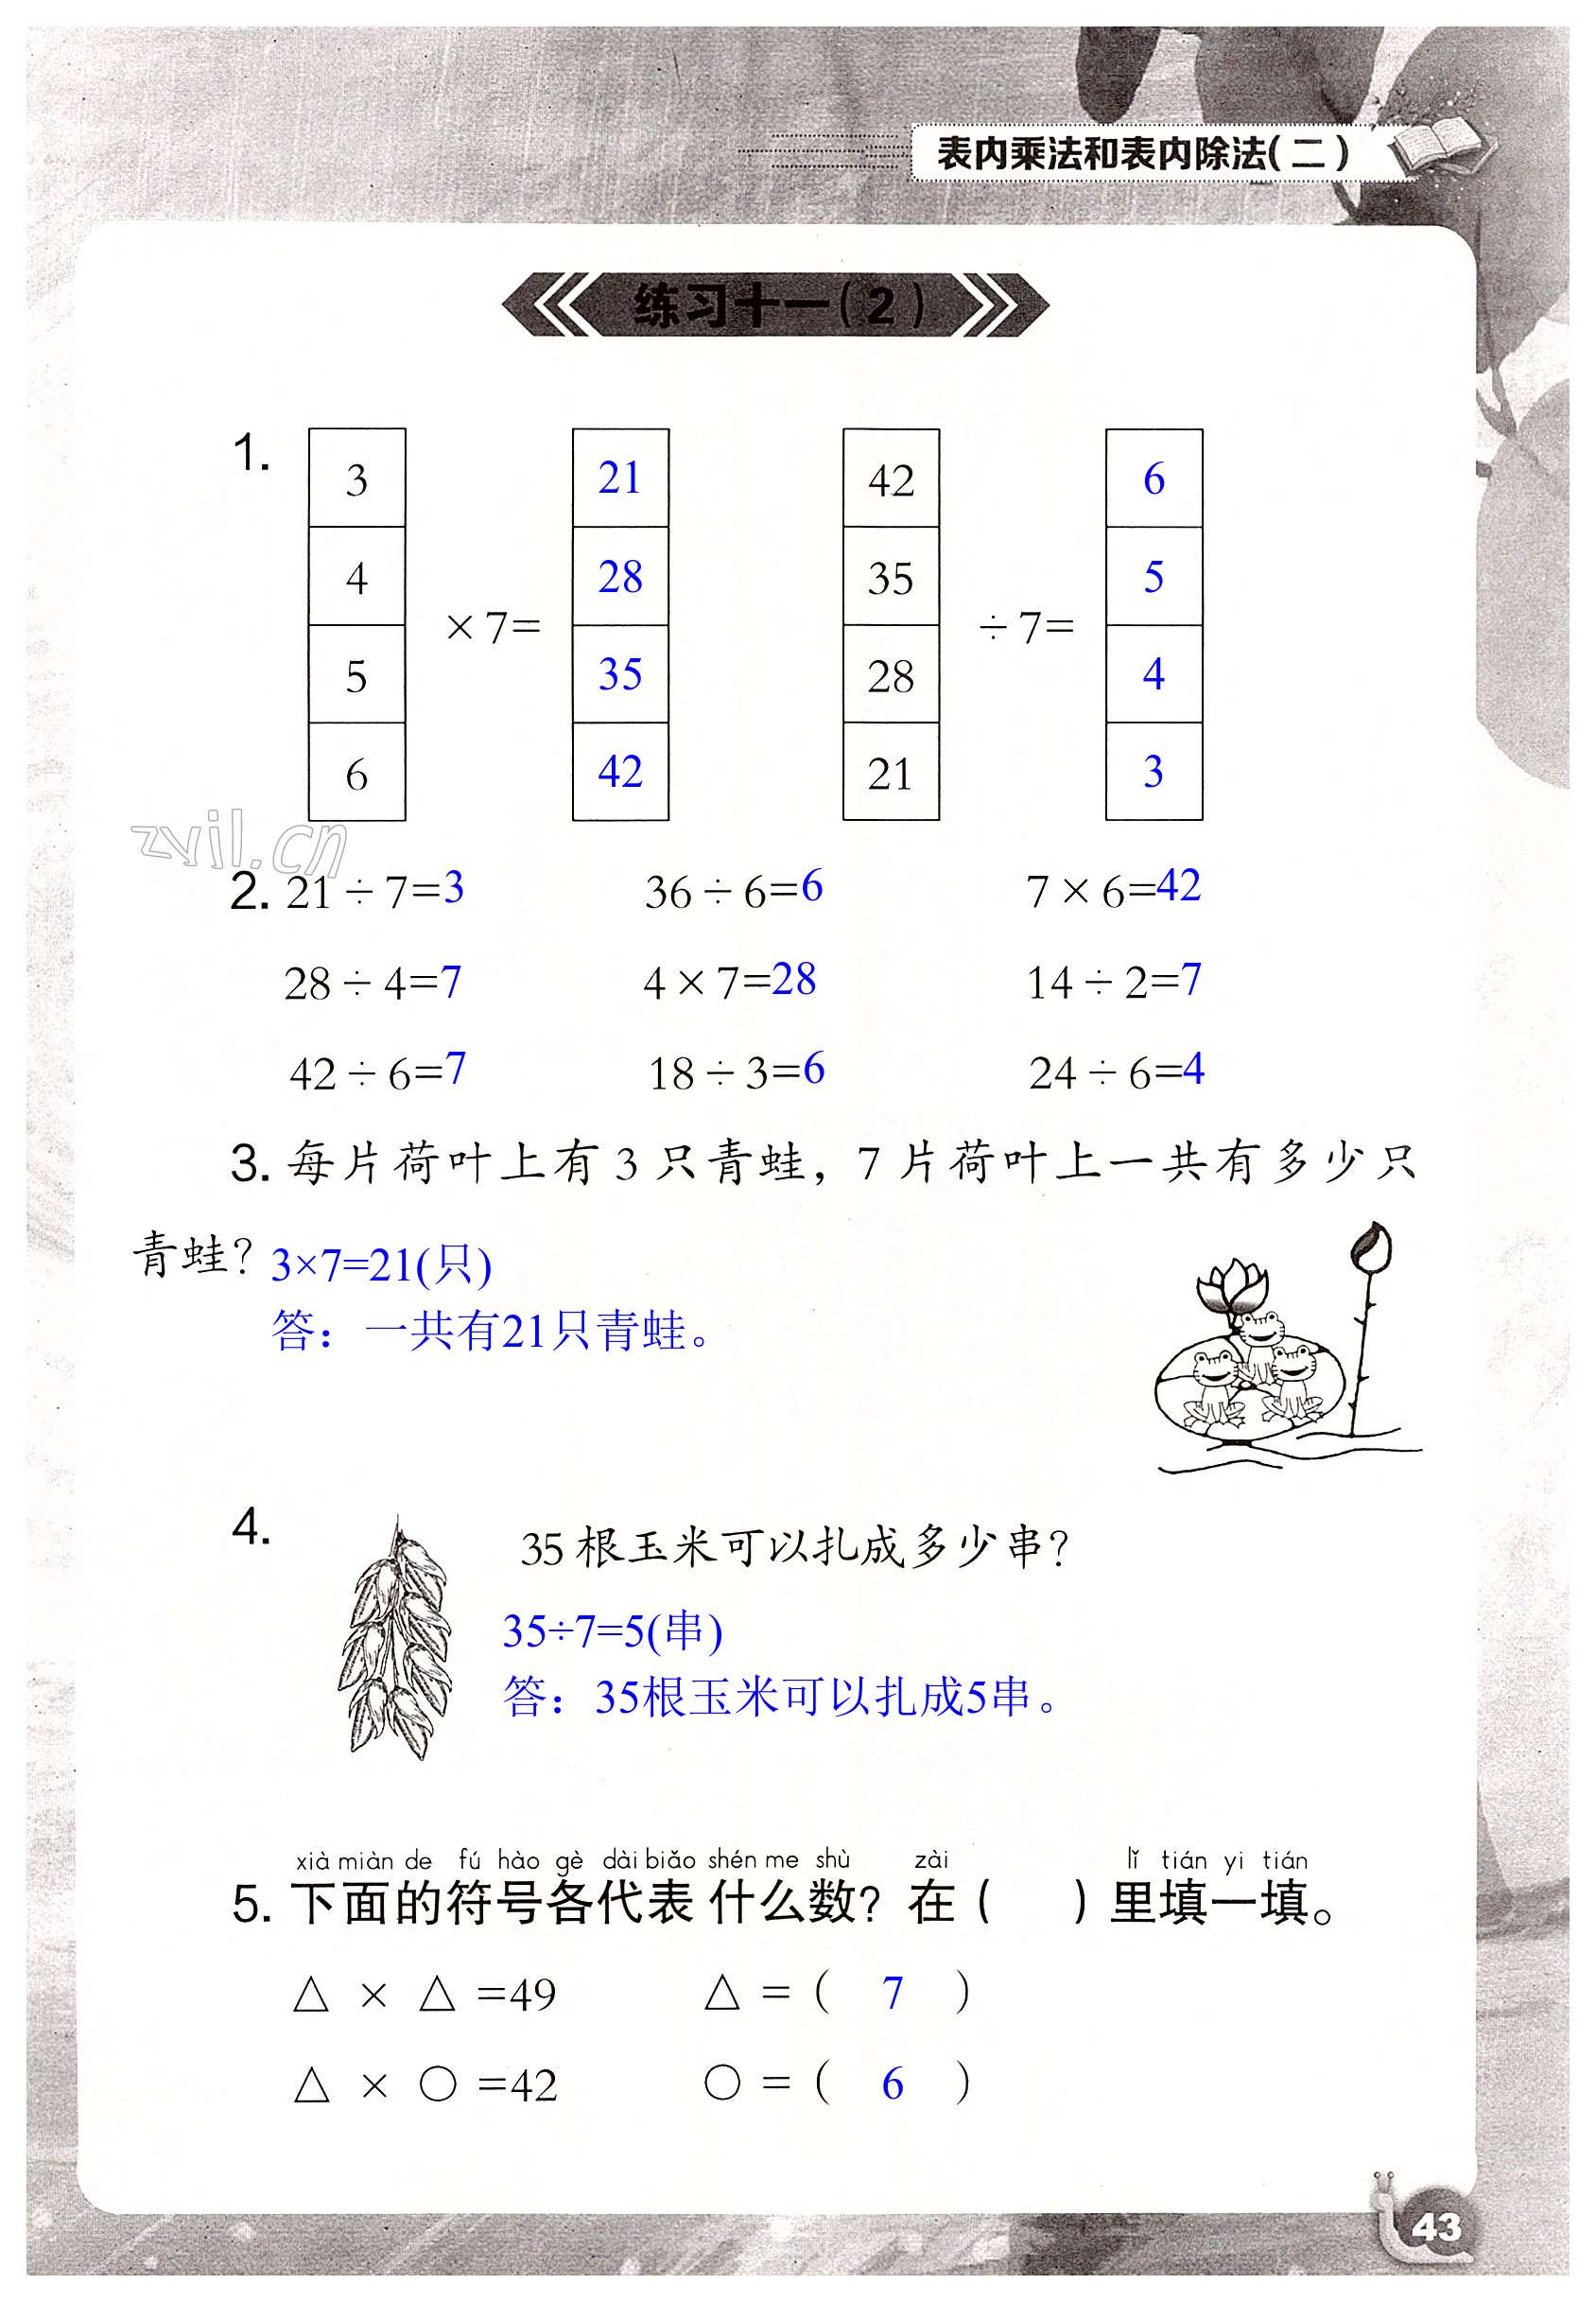 表内乘法和表内除法(二)
练习十一(2)
1.
3 21 42 6
4 28 35 5
×7= ÷7=
5 35 28 4
6 42 21 3
zvil.cn
2. 21÷7=3 36÷6=6 7×6=42
28÷4=7 4×7=28 14÷2=7
42÷6=7 18÷3=6 24÷6=4
3. 每片荷叶上有3只青蛙，7片荷叶上一共有多少只
青蛙？3×7=21(只)
答：一共有21只青蛙。
4. 35根玉米可以扎成多少串？
35÷7=5(串)
答：35根玉米可以扎成5串。
xià miàn de fú hào gè dài biǎo shén me shù zài lǐ tián yi tián
5. 下面的符号各代表什么数？在（ ）里填一填。
△ × △ =49 △ =( 7 )
△ × ○ =42 ○ =( 6 )
43